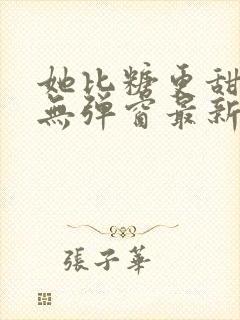 她比糖更甜
無彈窗最新
張子華